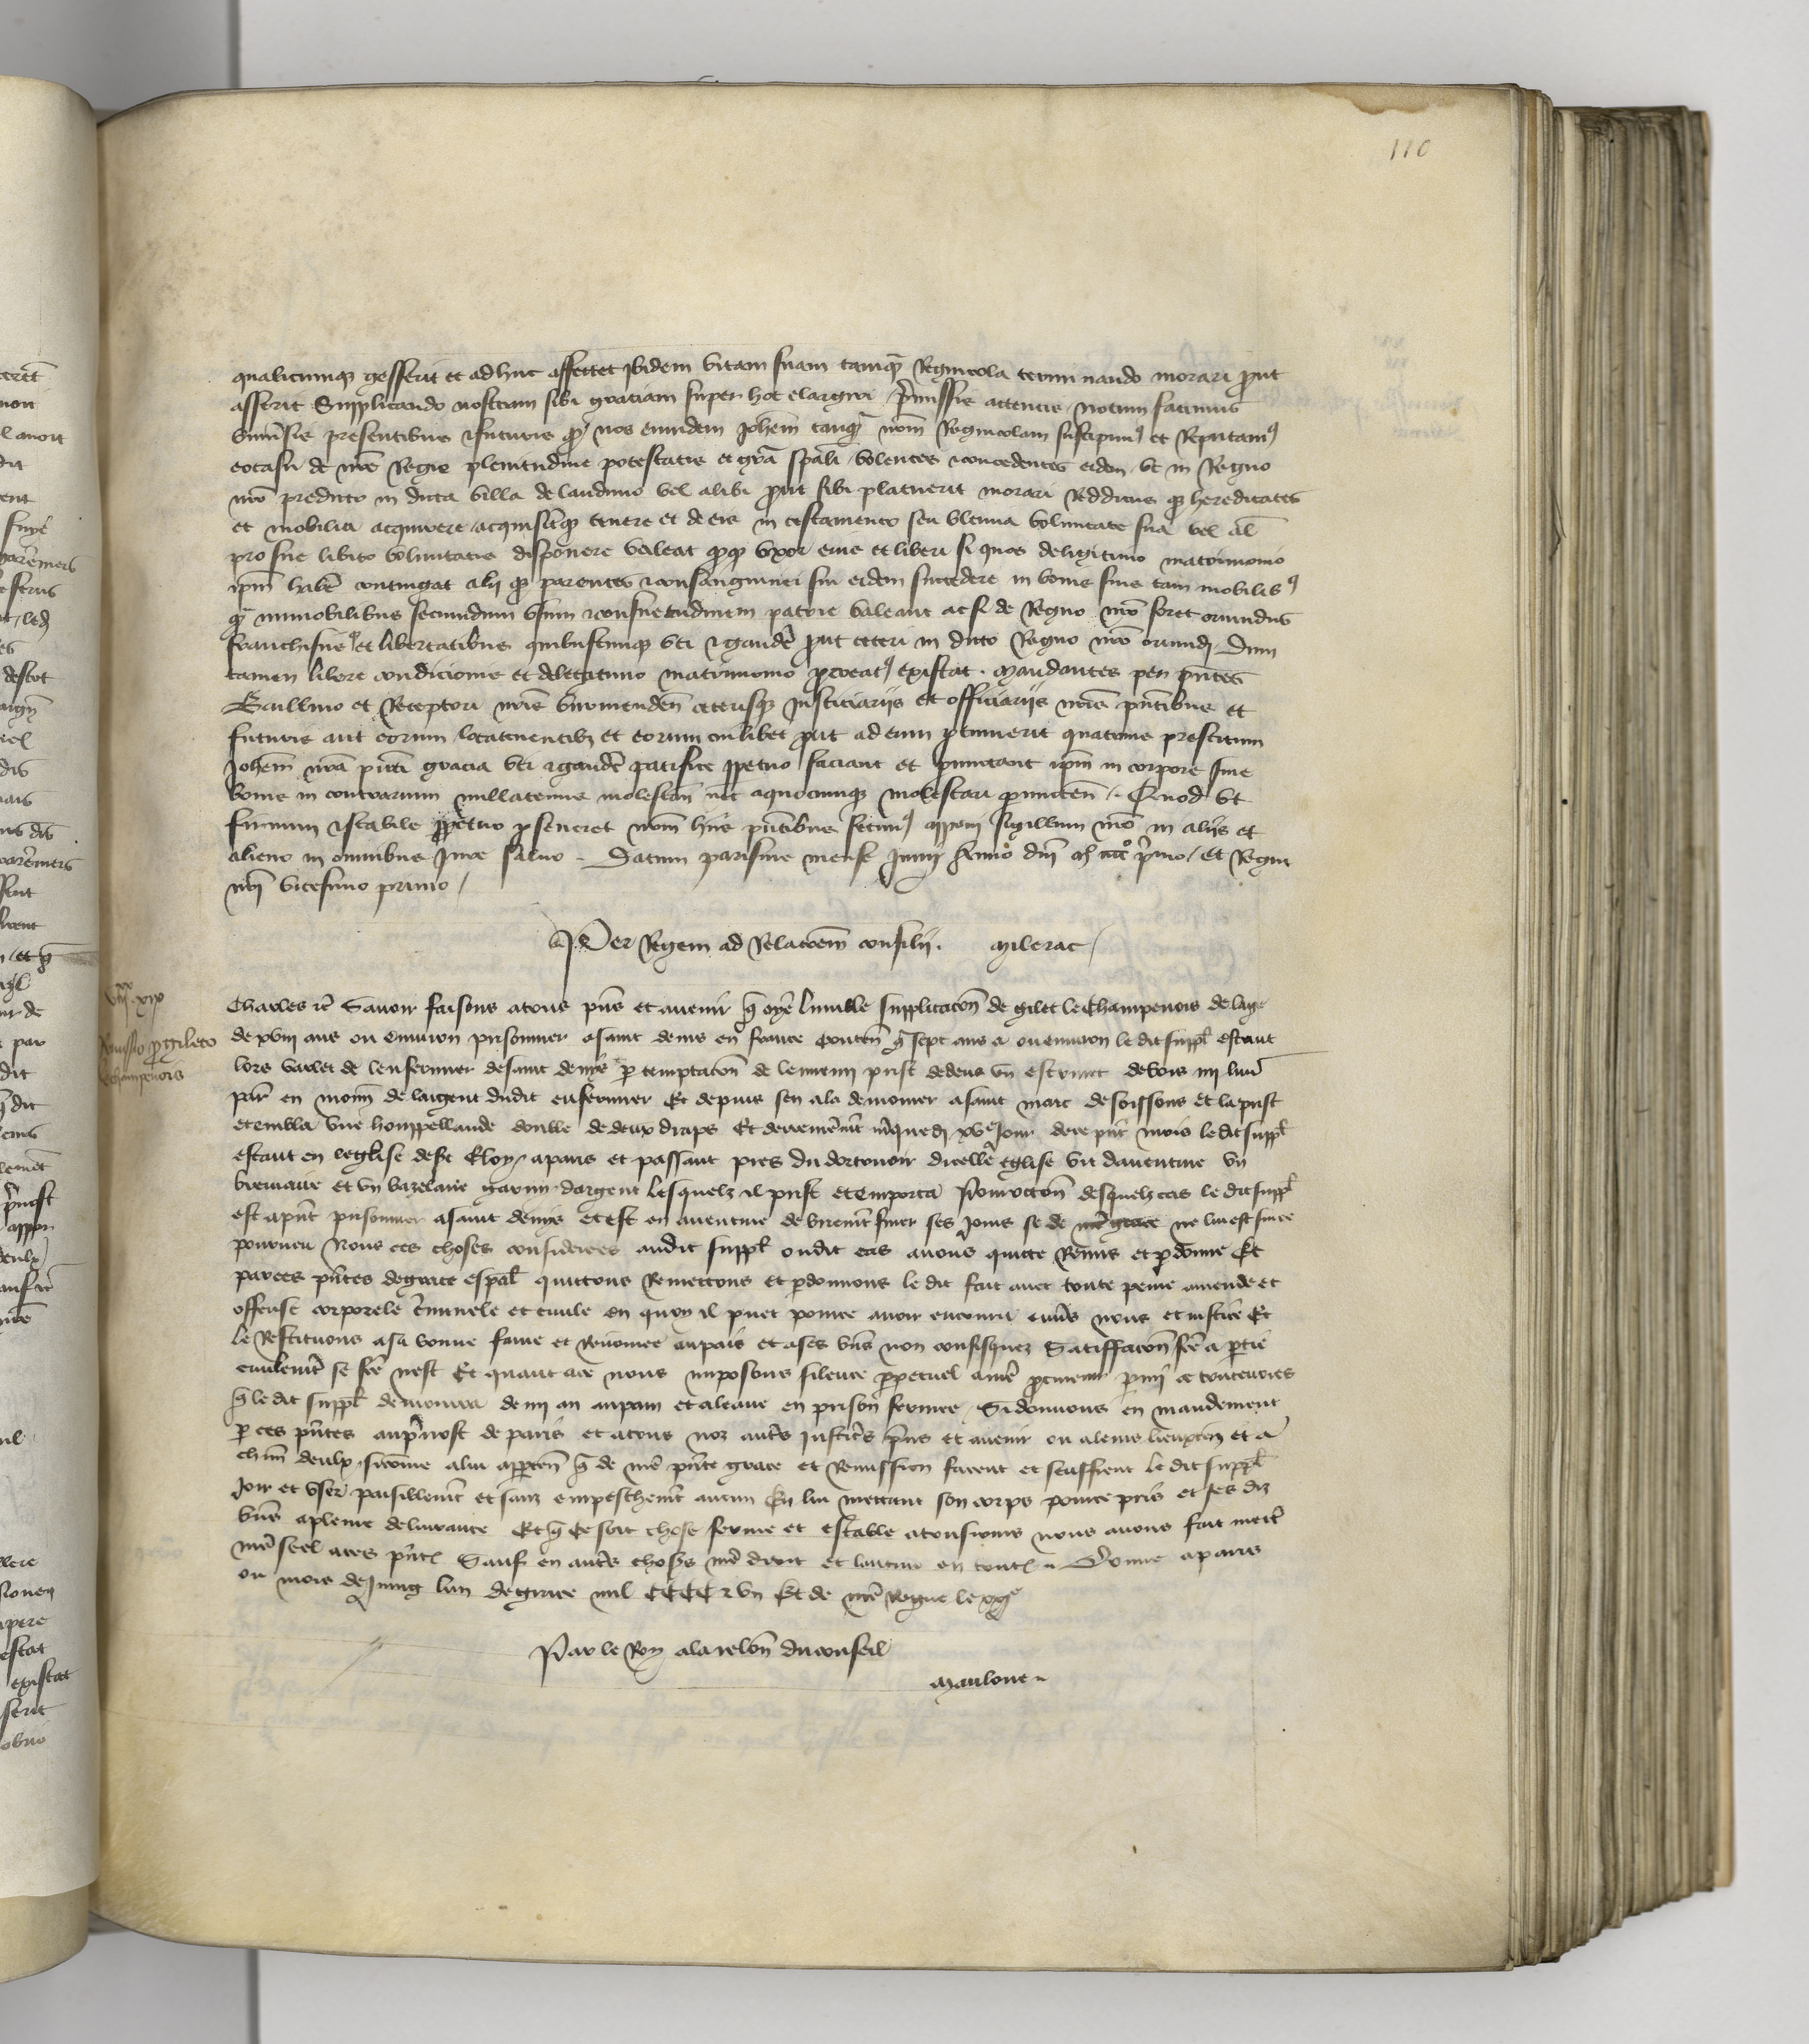 110
qualicumq gesserit et adhuc affectet ibidem vitam suam tamq̄ Regnicola terminando morari p̄ut
asserit Supplicando nostram sibi graciam super hoc elargiri p̄missis attentis notum facimus
universis presentibus & futuris q nos eundem Joh̄em tanq̄ nr̄m Regnicolam suscipimꝰ et Reputamꝰ
de nr̄e Regie plenitudine potestatis et gr̄a sp̄ali volentes & concedentes eidem ut in Regno
nr̄o predicto in dicta villa de lauduno vel alibi p̄ut sibi placuerit morari Redditus q hereditates
et mobilia acquirere acquisitaq tenere et de eis in testamento seu ultima voluntate sua vel al̄
pro sue libito voluntatis disponere valeat q̄q uxor eius et liberi si quos de legitimo matrimonio
ip̄m hab̄e contingat alij q parentes & consanguinei sui eidem succedere in bonis suis tam mobilibꝰ
q̄ immobilibus secundum usum & consuetudinem patrie valeant ac si de Regno nr̄o foret oriundus
franchisiis et libertatibus quibuscumq uti & gaudē p̄ut ceteri in dicto Regno nr̄o oriundi Dum
tamen libere condicionis et de legitimo matrimonio p̄creatꝰ existat . Mandantes p̄n̄tes
Baillivo et Receptori nr̄is viromendeñ ceterisq Justiciariis et officiariis nr̄is p̄n̄tibus et
futuris aut eorum locatenentibȝ et eorum cuilibet p̄ut ad eum p̄tinuerit quatinus prefatum
Joh̄em nr̄a p̄n̄ti gracia uti & gaudē pacifice p̄petuo faciant et p̄mittant ip̄m in corpore sive
bonis in contrarium nullatenus molestan̄ nec a quocumq molestari p̄mitten̄ . Quod ut
firmum & stabile p̄petuo p̄severet nr̄m hiis p̄n̄tibus fecimꝰ apponi sigillum nr̄o in aliis et
alieno in omnibus Jure salvo . Datum parisius mense Junii Anno dn̄i mº ccccº p̄mo / et Regni
nr̄i vicesimo primo /
Per Regem ad Relac̄oem consilii . Milerac /
viiˣˣ xix
Remissio p̄ gileto
le champenois
Charles &c̄ Savoir faisons a tous p̄ns et avenir q̄ oye lumble supplicac̄on de gilet le Champenois de laige
de xviii ans ou environ prisonnier a saint denis en france conten̄ q̄ sept ans a ou environ le dit suppl̄ estant
lors varlet de lenfermier de saint denis p̄ temptac̄on de lennemi prist dedens un escrinet de bois iiii liur̄
par̄ en monn̄ de largent dudit enfermier Et depuis sen ala demourer a saint marc de soissons et la prist
et embla une houppellande double de deux draps Et derrenierem̄t m̄quedi xvᵉ Jour de ce p̄n̄t mois le dit suppl̄
estant en leglise de st̄ Eloy a paris et passant pres du dortouoir dicelle eglise vit daventure un
breviaire et un bazelaire garni dargent lesquelz il prist et emporta Pour occ̄on desquelz cas le dit suppl̄
est a p̄n̄t prisonnier a saint denis et est en aventure de briefm̄t finer ses Jours se de nr̄e grace ne lui est sur ce
pourveu Nous ces choses considerees audit suppl̄ ou dit cas avons quicte Remis et p̄donne Et
par ces p̄n̄tes de grace esp̄al̄ quictons Remettons et p̄donnons le dit fait avec toute peine amende et
offense corporele c̄minele et civile en quoy il puet pour ce avoir encouru envers nous et justice Et
le Restituons a sa bonne fame et Renomee au pais et a ses biens non confisquez Satisffac̄on fc̄e a p̄tie
civilem̄t se fc̄e nest Et quant a ce nous imposons silence p̄petuel a nr̄e p̄cureur p̄mi ce toutevoies
q̄ le dit suppl̄ demourra demi an au pain et a leaue en prison fermee . Si donnons en mandement
p̄ ces p̄n̄tes au p̄vost de paris et a tous noz aut̄s Justic̄s p̄ns et avenir ou a leurs lieuxten̄ et a
ch̄un deulx si comme a lui app̄ten̄ q̄ de nr̄e p̄n̄te grace et Remission facent et seuffrent le dit suppl̄
Joir et user paisiblem̄t et sanz empeschem̄t aucun En lui mettant son corps pour ce pris et ses diz
biens a pleine delivrance Et q̄ ce soit chose ferme et estable a tousiours nous avons fait mett̄
nr̄e seel a ces p̄n̄tes Sauf en aut̄s choses nr̄e droit et lautrui en toutes Donne a paris
ou mois de Juing lan de grace mil CCCC & un Et de nr̄e Regne le xxjᵉ
Par le Roy a la relac̄on du conseil
Mauloue